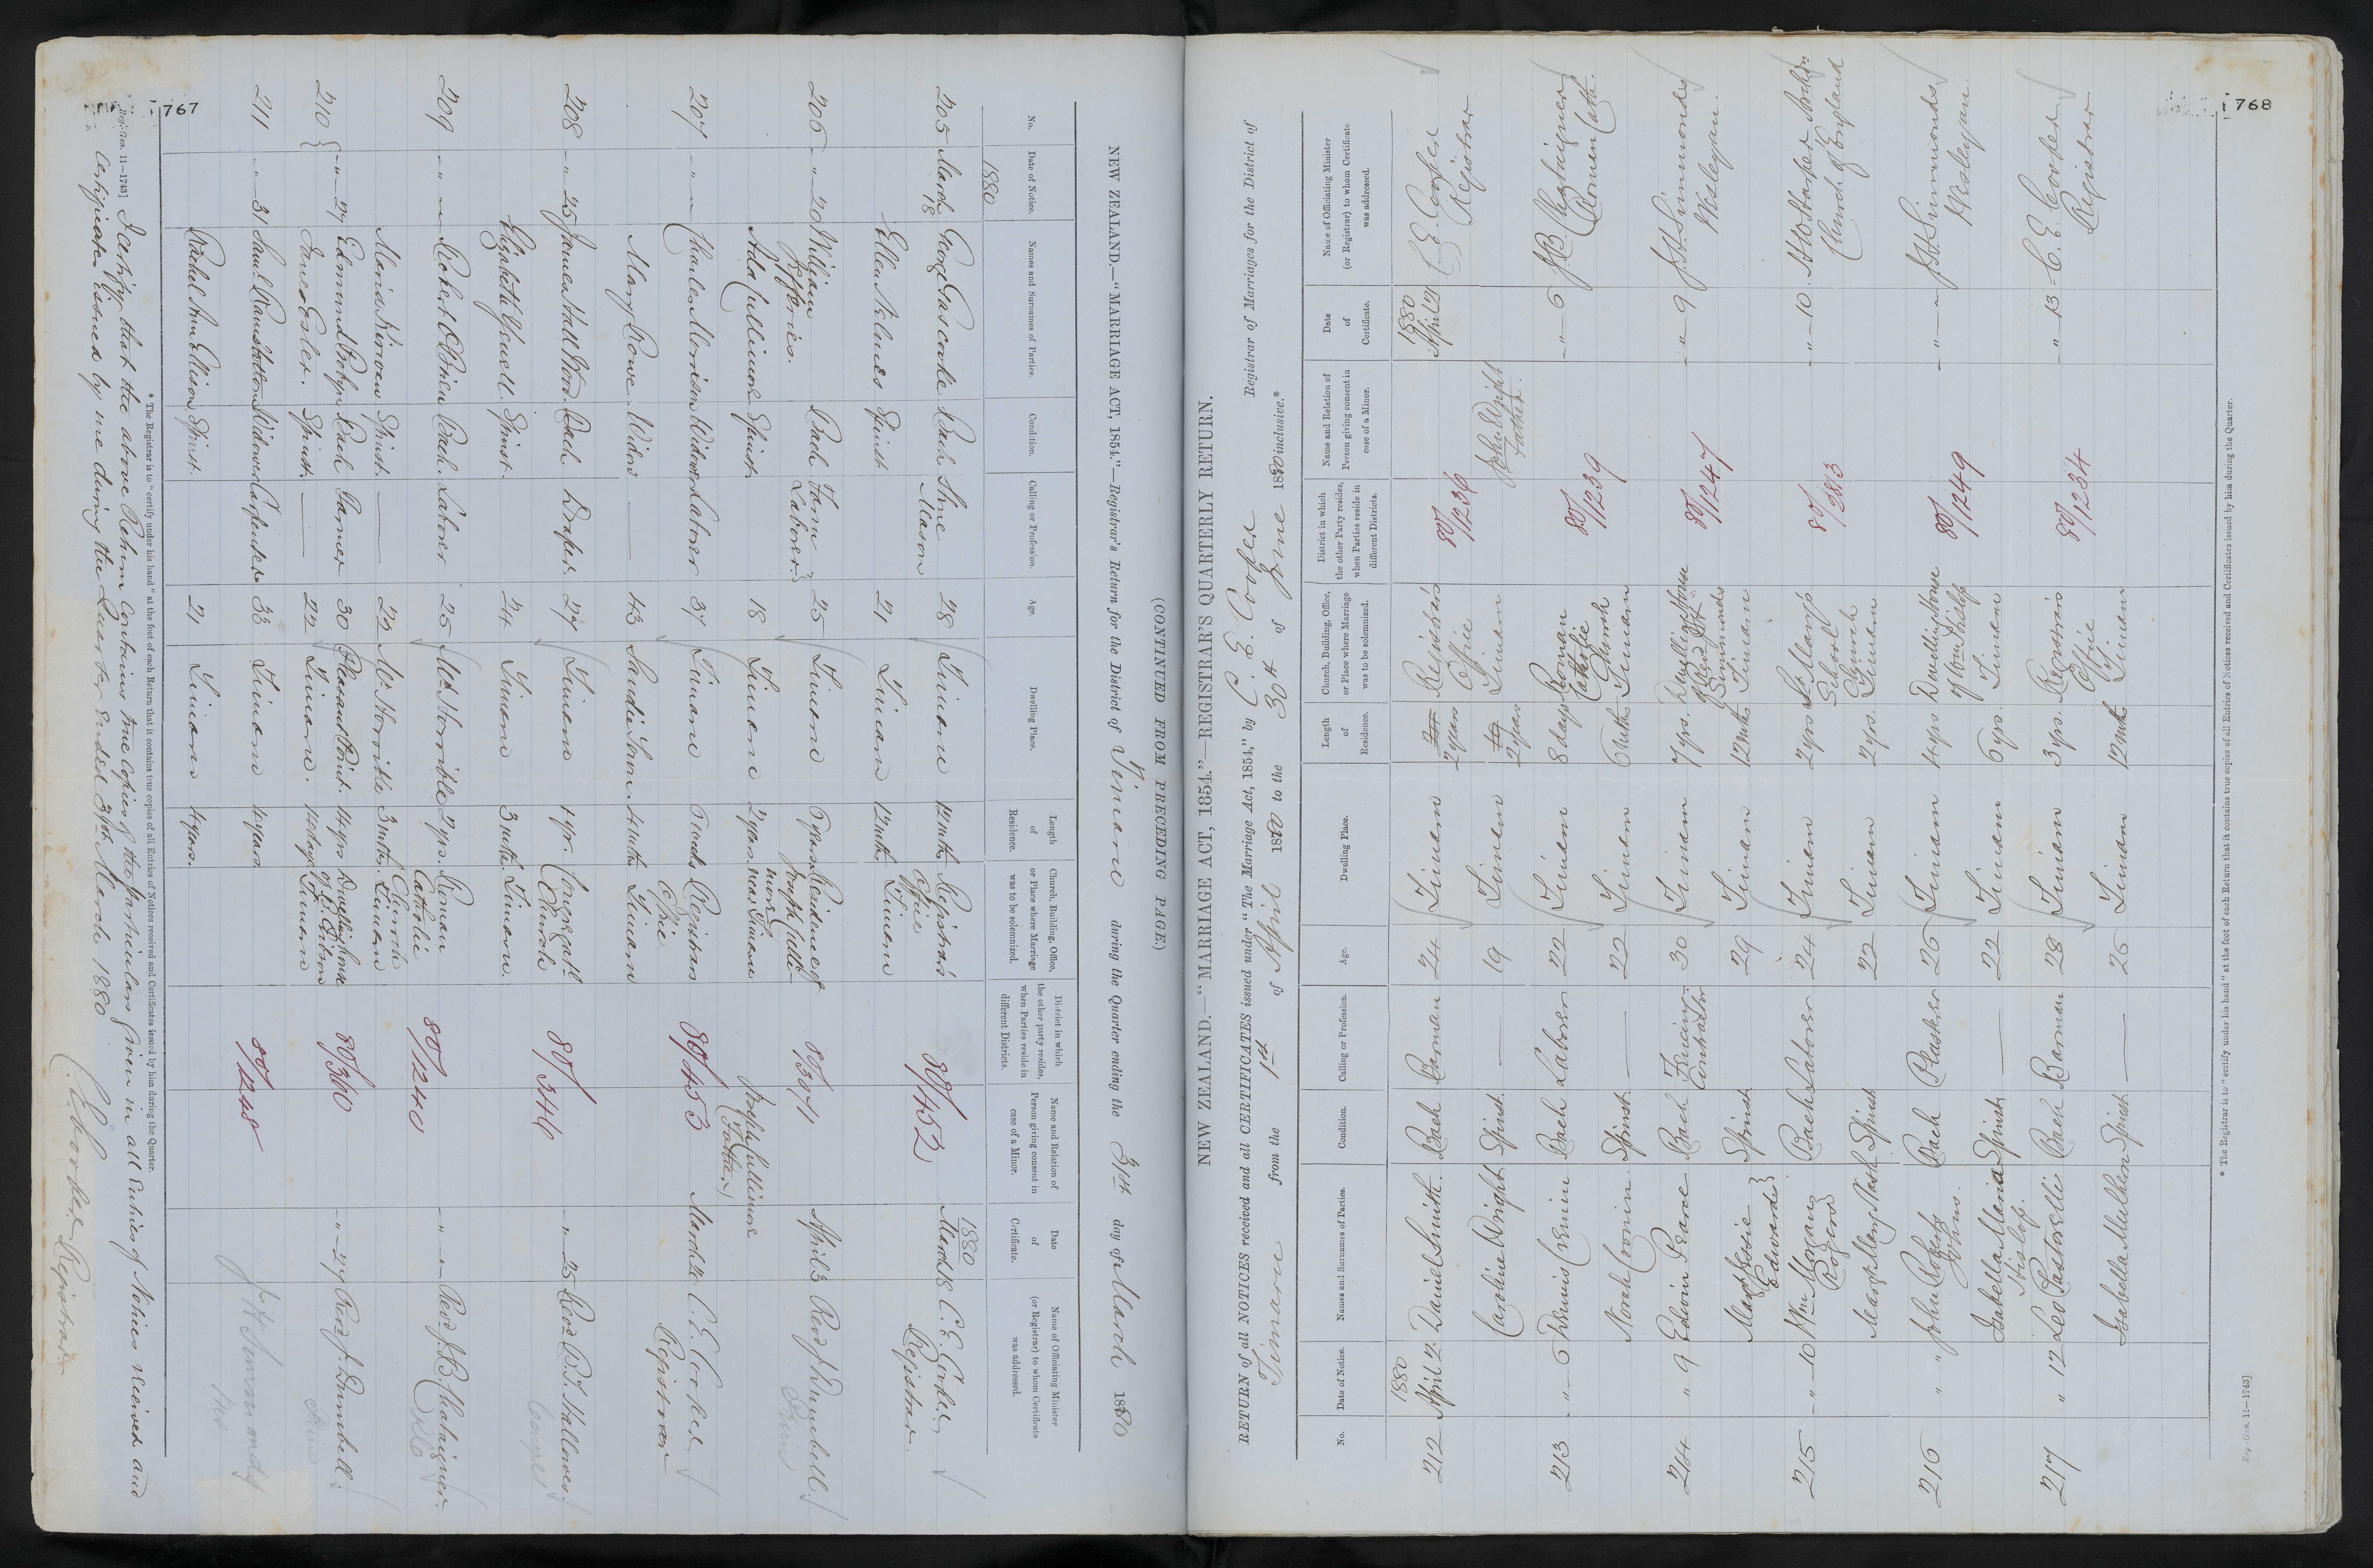 767
(CONTINUED FROM PRECEDING PAGE)
NEW ZEALAND.—"MARRIAGE ACT, 1854."—Registrar's Return for the District of Timaru during the Quarter ending the 31st day of March 1880
No. Date of Notice. Names and Surnames of Parties. Condition. Calling or Profession. Age. Dwelling Place. Length of Residence. Church, Building, Office, or Place where Marriage was to be solemnized. District in which the other party resides, when Parties reside in different Districts. Name and Relation of Person giving consent in case of a Minor. Date of Certificate. Name of Officiating Minister (or Registrar) to whom Certificate was addressed.
1880 1880
205 March 18 George Gascoine Bach Stone Mason 28 Timaru 12 mths Registrar's Office 80/452 March 18 C. E. Cooper Registrar
Ellen Spinst 21 Timaru 12 mths Timaru
206 " 20 William Jefferies. Bach Farm Laborer 25 Timaru 6 years Residence of Joseph Cullimore near Timaru 80/3471 April 3 Revd J. Dumbell
Ada Cullimore Spinst. 18 Timaru 2 years Joseph Cullimore (Father)
207 " " Charles Morrison Widower Laborer 37 Timaru 6 weeks Registrar's Office 80/453 March 20 C. E. Cooper Registrar
Mary Rowe Widow — 43 Sandietown 4 mths Timaru
208 " 25 James Hall Bach Draper 27 Timaru 1 yr. Congregatl. Church 80/346 " 25 Revd
Elizabeth Yewell. Spinst. 24 Timaru 3 mths Timaru.
209 " " Robert O'Brien Bach. Laborer 25 Mt Horrible 2 yrs. Roman Catholic Church Timaru 80/1240 " " Revd J. B. Chataigner.
Maria Kirwan Spinst. — 22 Mt Horrible 3 mths.
210 " 27 Edmund Probyn Bach Farmer 30 Pleasant Point. 14 yrs Dwelling House of Gibson Timaru 80/360 " 27 Revd J. Dumbell.
Jane Esler. Spinst. — 22 Timaru. 14 days
211 " 31 Saml Ramsbottom Widower Carpenter 33 Timaru 4 years 80/1248 J. H. Simmonds
Rachel Ann Ellison Spinst. 21 Timaru 4 years.
* The Registrar is to "certify under his hand" at the foot of each Return that it contains true copies of all Entries of Notices received and Certificates issued by him during the Quarter.
Reg.-Gen. 11—1743]
I certify that the above Return contains true copies of the particulars given in all Entries of Notices received and
Certificates issued by me during the Quarter ended 31st March 1880
C E Cooper Registrar.
768
NEW ZEALAND.—"MARRIAGE ACT, 1854."—REGISTRAR'S QUARTERLY RETURN.
RETURN of all NOTICES received and all CERTIFICATES issued under "The Marriage Act, 1854," by C. E. Cooper Registrar of Marriages for the District of
Timaru from the 1st of April 1880 to the 30th of June 1880 inclusive.*
No. Date of Notice. Names and Surnames of Parties. Condition. Calling or Profession. Age. Dwelling Place. Length of Residence. Church, Building, Office, or Place where Marriage was to be solemnized. District in which the other Party resides, when Parties reside in different Districts. Name and Relation of Person giving consent in case of a Minor. Date of Certificate. Name of Officiating Minister (or Registrar) to whom Certificate was addressed.
1880 1880
212 April 2 Daniel Smith. Bach 24 Timaru 2 years Registrar's Office Timaru 80/1236 C. E. Cooper Registrar
Caroline Wright Spinst. — 19 Timaru 2 years John Wright Father.
213 " 6 Dennis Cremin Bach Laborer 22 Timaru 8 days Roman Catholic Church Timaru 80/1239 " 6 J. B. Chataigner Roman Cath.
Norah Cronin Spinst. — 22 Timaru 6 mths
214 " 9 Edwin Pearce Bach Contractor 30 Timaru 7 yrs. Dwelling House of Revd J. H. Simmonds Timaru 80/1247 " 9 J. H. Simmonds Wesleyan.
Edwards Spinst 29 Timaru 12 mths
215 " 10 Wm Morgan Rogers Bach Laborer 24 Timaru 2 yrs St Mary's School Church Timaru 80/2813 " 10 H. W. Harper Archdn Church of England
Mary Nash Spinst 22 Timaru 2 yrs.
216 " " John Robert Johns. Bach Plasterer 26 Timaru 4 yrs Dwelling House of Tom Hislop Timaru 80/1249 " " J. H. Simmonds Wesleyan
Isabella Maria Hislop. Spinst — 22 Timaru 6 yrs.
217 " 12 Leo Pastorelli Bach Barman 28 Timaru 3 yrs. Registrar's Office Timaru 80/1234 " 13 C. E. Cooper Registrar
Isabella Mulhern Spinst — 26 Timaru 12 mths
* The Registrar is to "certify under his hand" at the foot of each Return that it contains true copies of all Entries of Notices received and Certificates issued by him during the Quarter.
Reg.-Gen. 11—1743]